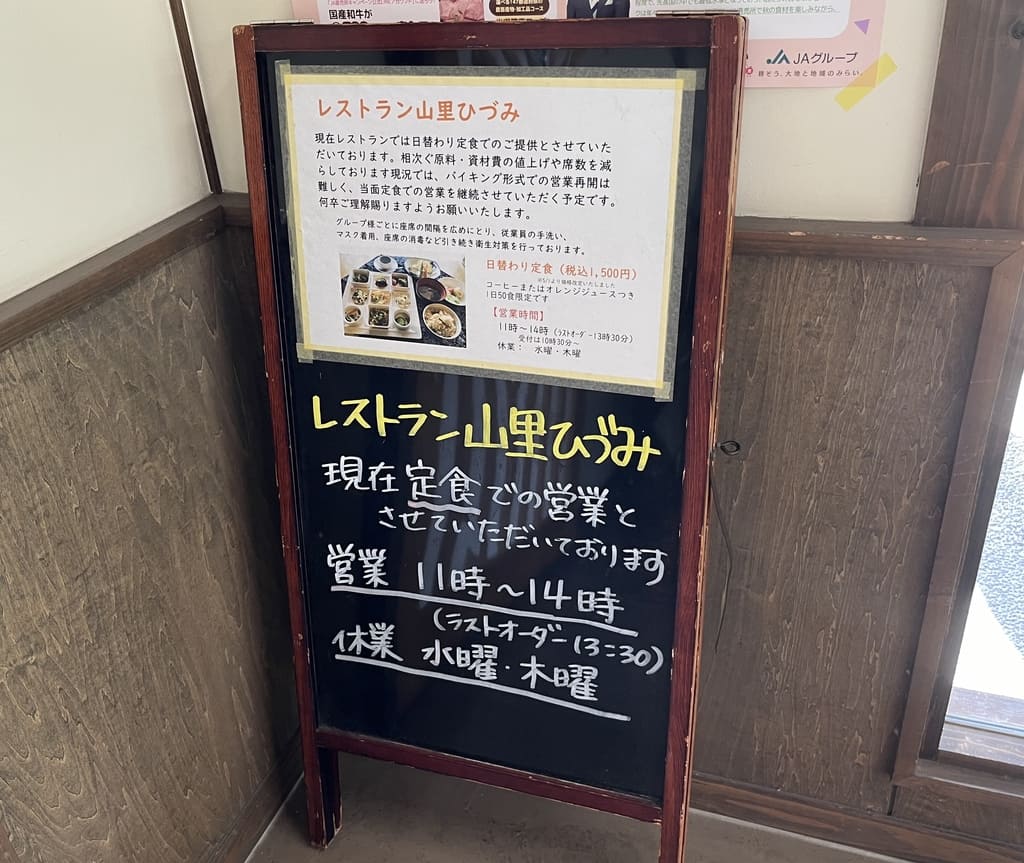 国産和牛が
選べる147
農畜産物・加工品コース
JAグループ
耕そう、大地と地域のみらい。
レストラン山里ひづみ
現在レストランでは日替わり定食でのご提供とさせていた
だいております。相次ぐ原料・資材費の値上げや席数を減
らしております現況では、バイキング形式での営業再開は
難しく、当面定食での営業を継続させていただく予定です。
何卒ご理解賜りますようお願いいたします。
グループ様ごとに座席の間隔を広めにとり、従業員の手洗い、
マスク着用、座席の消毒など引き続き衛生対策を行っております。
日替わり定食（税込1,500円）
※5/1より価格改定いたしました
コーヒーまたはオレンジジュースつき
1日50食限定です
【営業時間】
11時～14時（ラストオーダー13時30分）
受付は10時30分～
休業： 水曜・木曜
レストラン山里ひづみ
現在定食での営業と
させていただいております
営業 11時～14時
(ラストオーダー 13:30)
休業 水曜・木曜